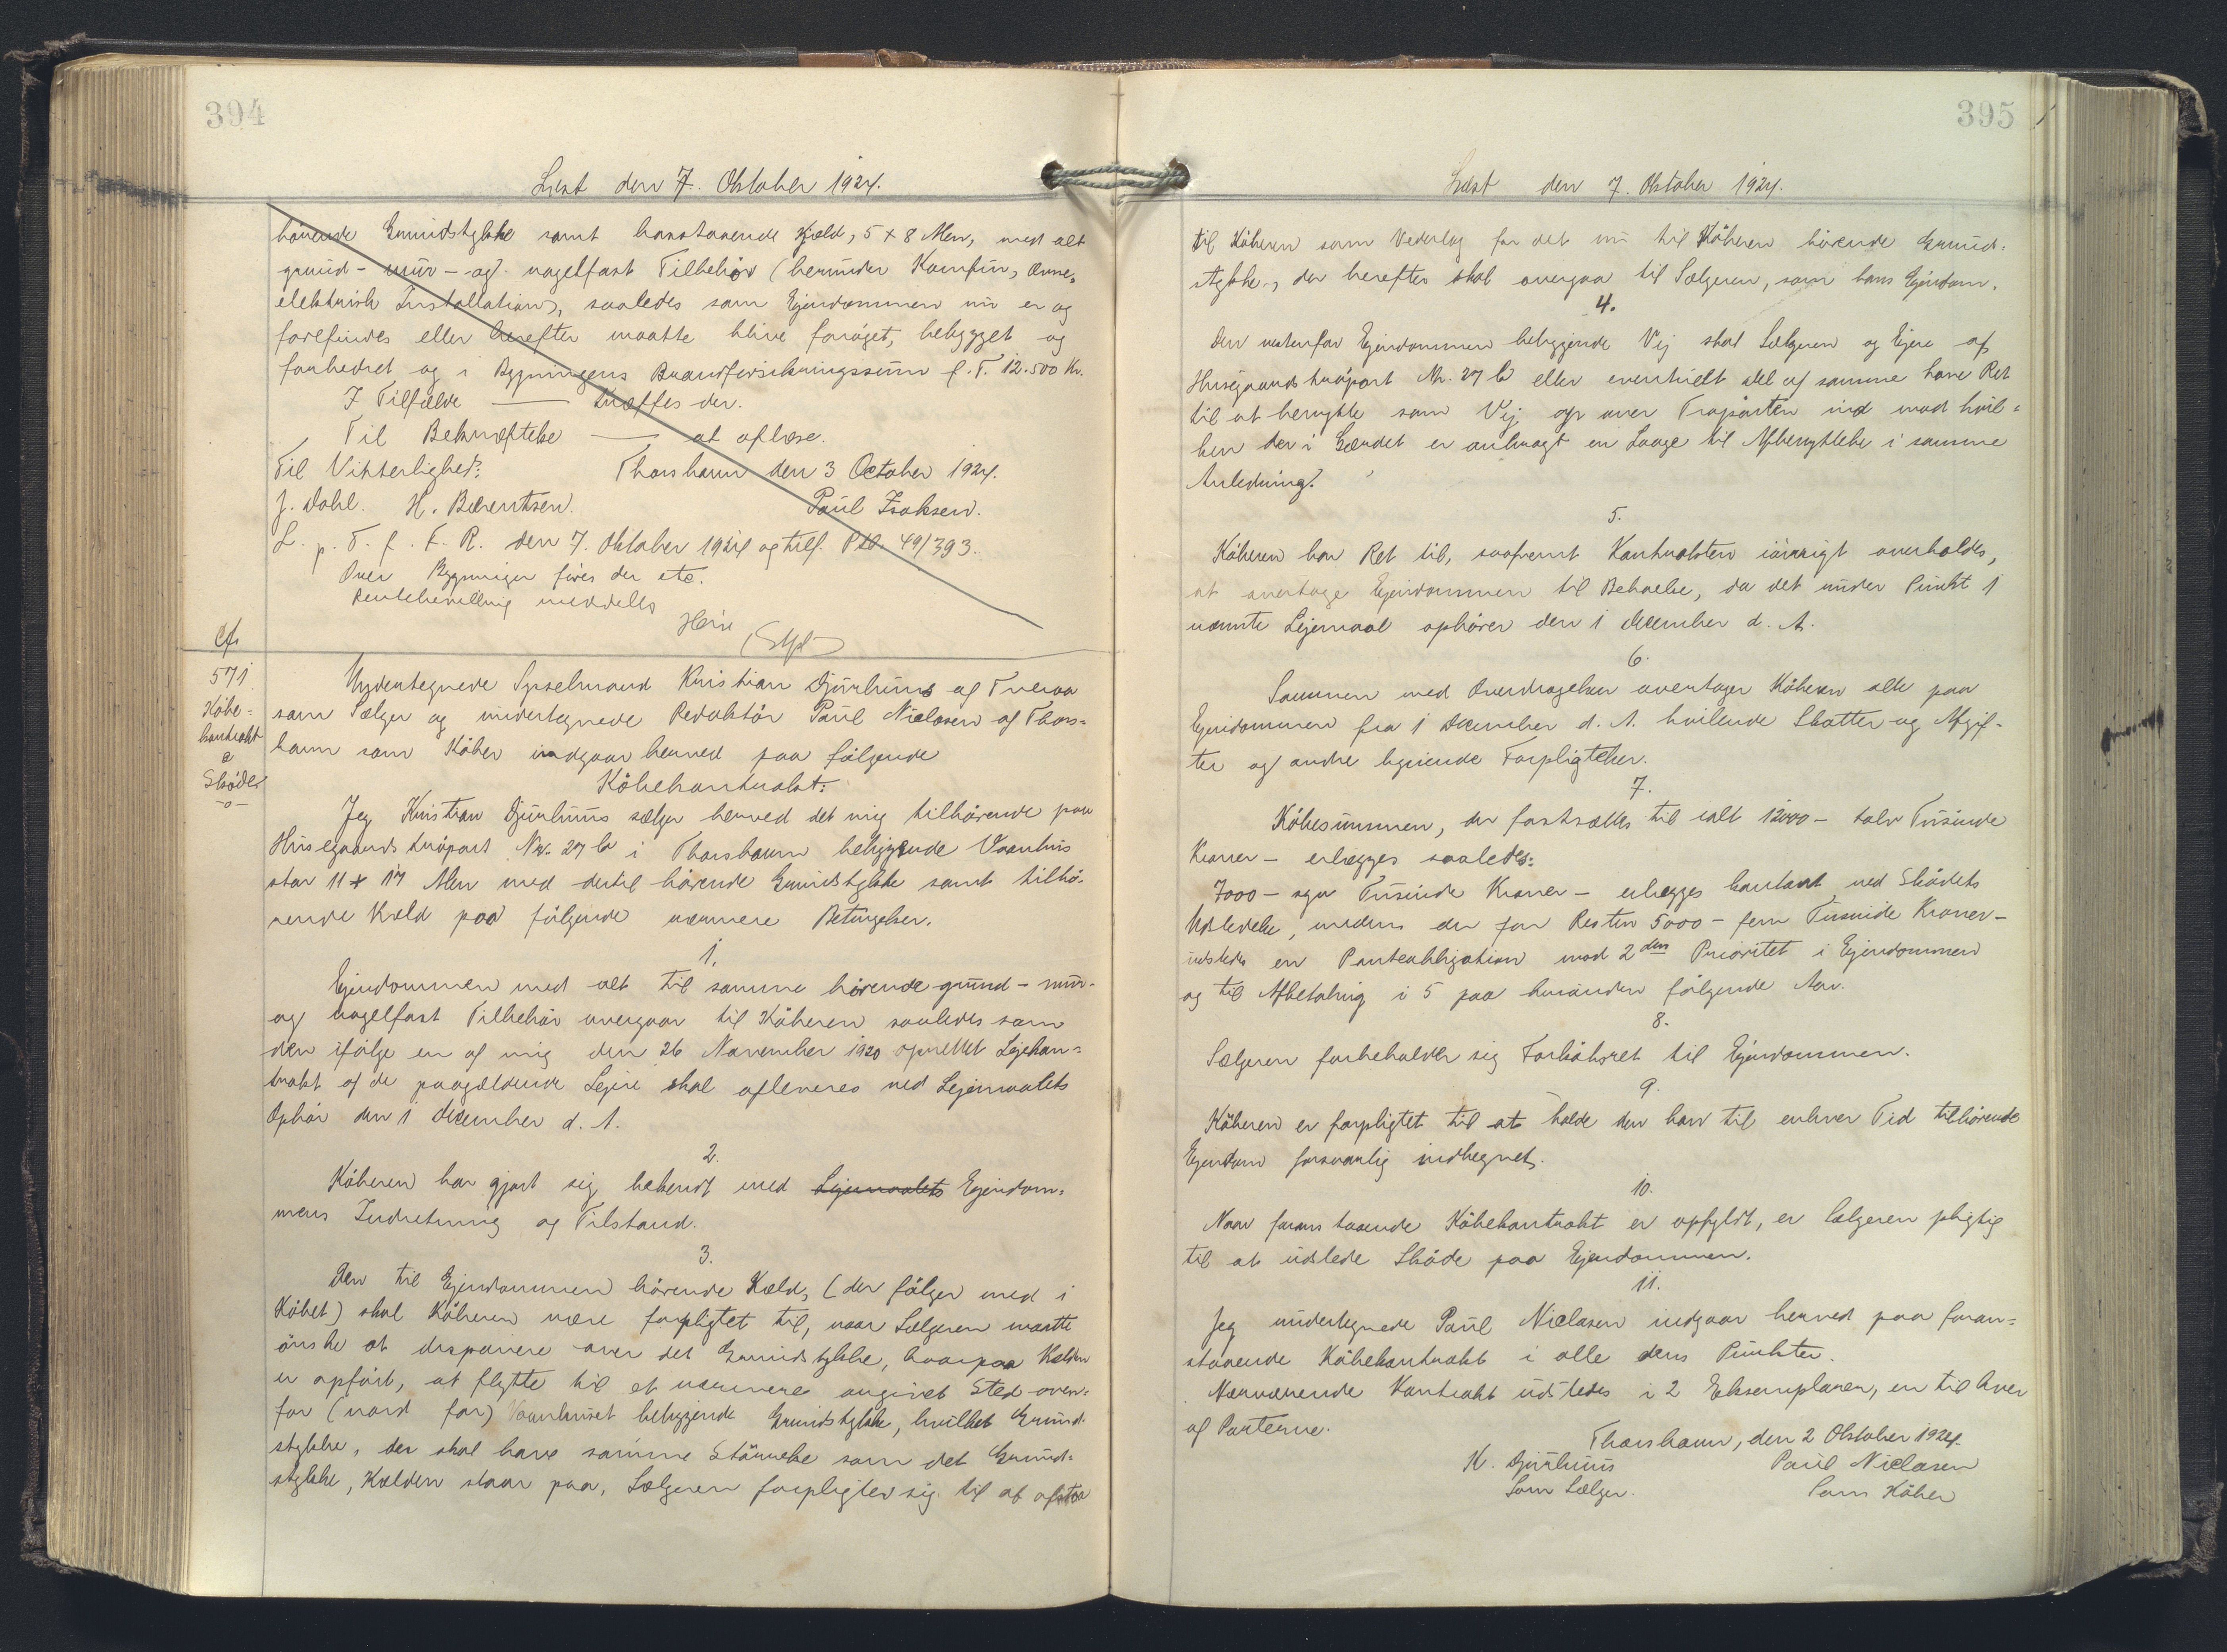 394
Læst den 7. Oktober 1924.
hörende Grundstykke samt hosstaaende Kjeld, 5 x 8 Alen, med alt
grund- mur- og nagelfast Tilbehör (herunder Komfur, Ovne,
elektrisk Installation), saaledes som Ejendommen nu er og
forefindes eller herefter maatte blive foröget, bebygget og
forbedret og i Bygningens Brandforsikringssum p. T. 12.500 Kr.
I Tilfælde — træffes der.
Til Bekræftelse — at aflæse.
Til Vitterlighed: Thorshavn den 3 October 1924.
J. Dahl. H. Bærentsen. Paul Isaksen.
L. p. T. f. F. R. den 7. Oktober 1924 og tilf. Ptb. 49/393.
Over Bygninger föres der etc.
Rentebevilling meddelts
Cfr
571
Köbe-
kontrakt
e
Sköder
-o-
Undertegnede Sysselmand Kristian Djurhuus af Tveraa
som Sælger og undertegnede Redaktör Paul Niclasen af Thors-
havn som Köber indgaar herved paa fölgende
Köbekontrakt:
Jeg Kristian Djurhuus sælger herved det mig tilhörende paa
Husegaardstraöpart Nr. 27 b i Thorshavn beliggende Vaanhus
stor 11 x 17 Alen med dertil hörende Grundstykke samt tilhö-
rende Kæld paa fölgende nærmere Betingelser.
1.
Ejendommen med alt til samme hörende grund- mur-
og nagelfast Tilbehör overgaar til Köberen saaledes som
den ifölge en af mig den 26 November 1920 oprettet Lejekon-
trakt af de paagældende Lejere skal afleveres ved Lejemaalets
Ophör den 1 December d. A.
2.
Köberen har gjort sig bekendt med Lejemaalets Ejendom-
mens Indretning og Tilstand.
3.
Den til Ejendommen hörende Kæld, (der fölger med i
Köbet) skal Köberen være forpligtet til, naar Sælgeren maatte
önske at disponere over det Grundstykke, hvorpaa Kælden
er opfört, at flytte til et nærmere angivet Sted oven-
for (nord for) Vaanhuset beliggende Grundstykke, hvilket Grund-
stykke, der skal have samme Störrelse som det Grund-
stykke, Kælden staar paa, Sælgeren forpligter sig til at afstaa
395
Læst den 7. Oktober 1924.
til Köberen som Vederlag for det nu til Köberen hörende Grund-
stykke, der herefter skal overgaa til Sælgeren, som hans Ejendom.
4.
Den vestenfor Ejendommen beliggende Vej skal Sælgeren og Ejere af
Husegaardstraöpart Nr. 27 b eller eventuelt del af samme have Ret
til at benytte som Vej op over Traöparten ind mod hvil-
ken der i Gærdet er anbragt en Laage til Afbenyttelse i samme
Anledning.
5.
Köberen har Ret til, saafremt Kontrakten iövrigt overholdes,
at overtage Ejendommen til Beboelse, da det under Punkt 1
nævnte Lejemaal ophörer den 1 December d. A.
6.
Sammen med Overdragelsen overtager Köberen alle paa
Ejendommen fra 1 December d. A. hvilende Skatter og Afgif-
ter og andre lignende Forpligtelser.
7.
Köbesummen, der fastsættes til ialt 12000 - tolv Tusinde
Kroner - erlægges saaledes:
7000 - syv Tusinde Kroner - erlægges kontant ved Sködets
Udstedelse, medens der for Resten 5000 - fem Tusinde Kroner -
udstedes en Panteobligation mod 2den Prioritet i Ejendommen
og til Afbetaling i 5 paa hinanden fölgende Aar.
8.
Sælgeren forbeholder sig Forköbsret til Ejendommen.
9.
Köberen er forpligtet til at holde den ham til enhver Tid tilhörende
Ejendom forsvarlig indhegnet.
10.
Naar foranstaaende Köbekontrakt er opfyldt, er Sælgeren pligtig
til at udstede Sköde paa Ejendommen.
11.
Jeg undertegnede Paul Niclasen indgaar herved paa foran-
staaende Köbekontrakt i alle dens Punkter.
Nærværende Kontrakt udstedes i 2 Eksemplarer, en til hver
af Parterne.
Thorshavn, den 2 Oktober 1924.
K. Djurhuus Paul Niclasen
Som Sælger. Som Köber